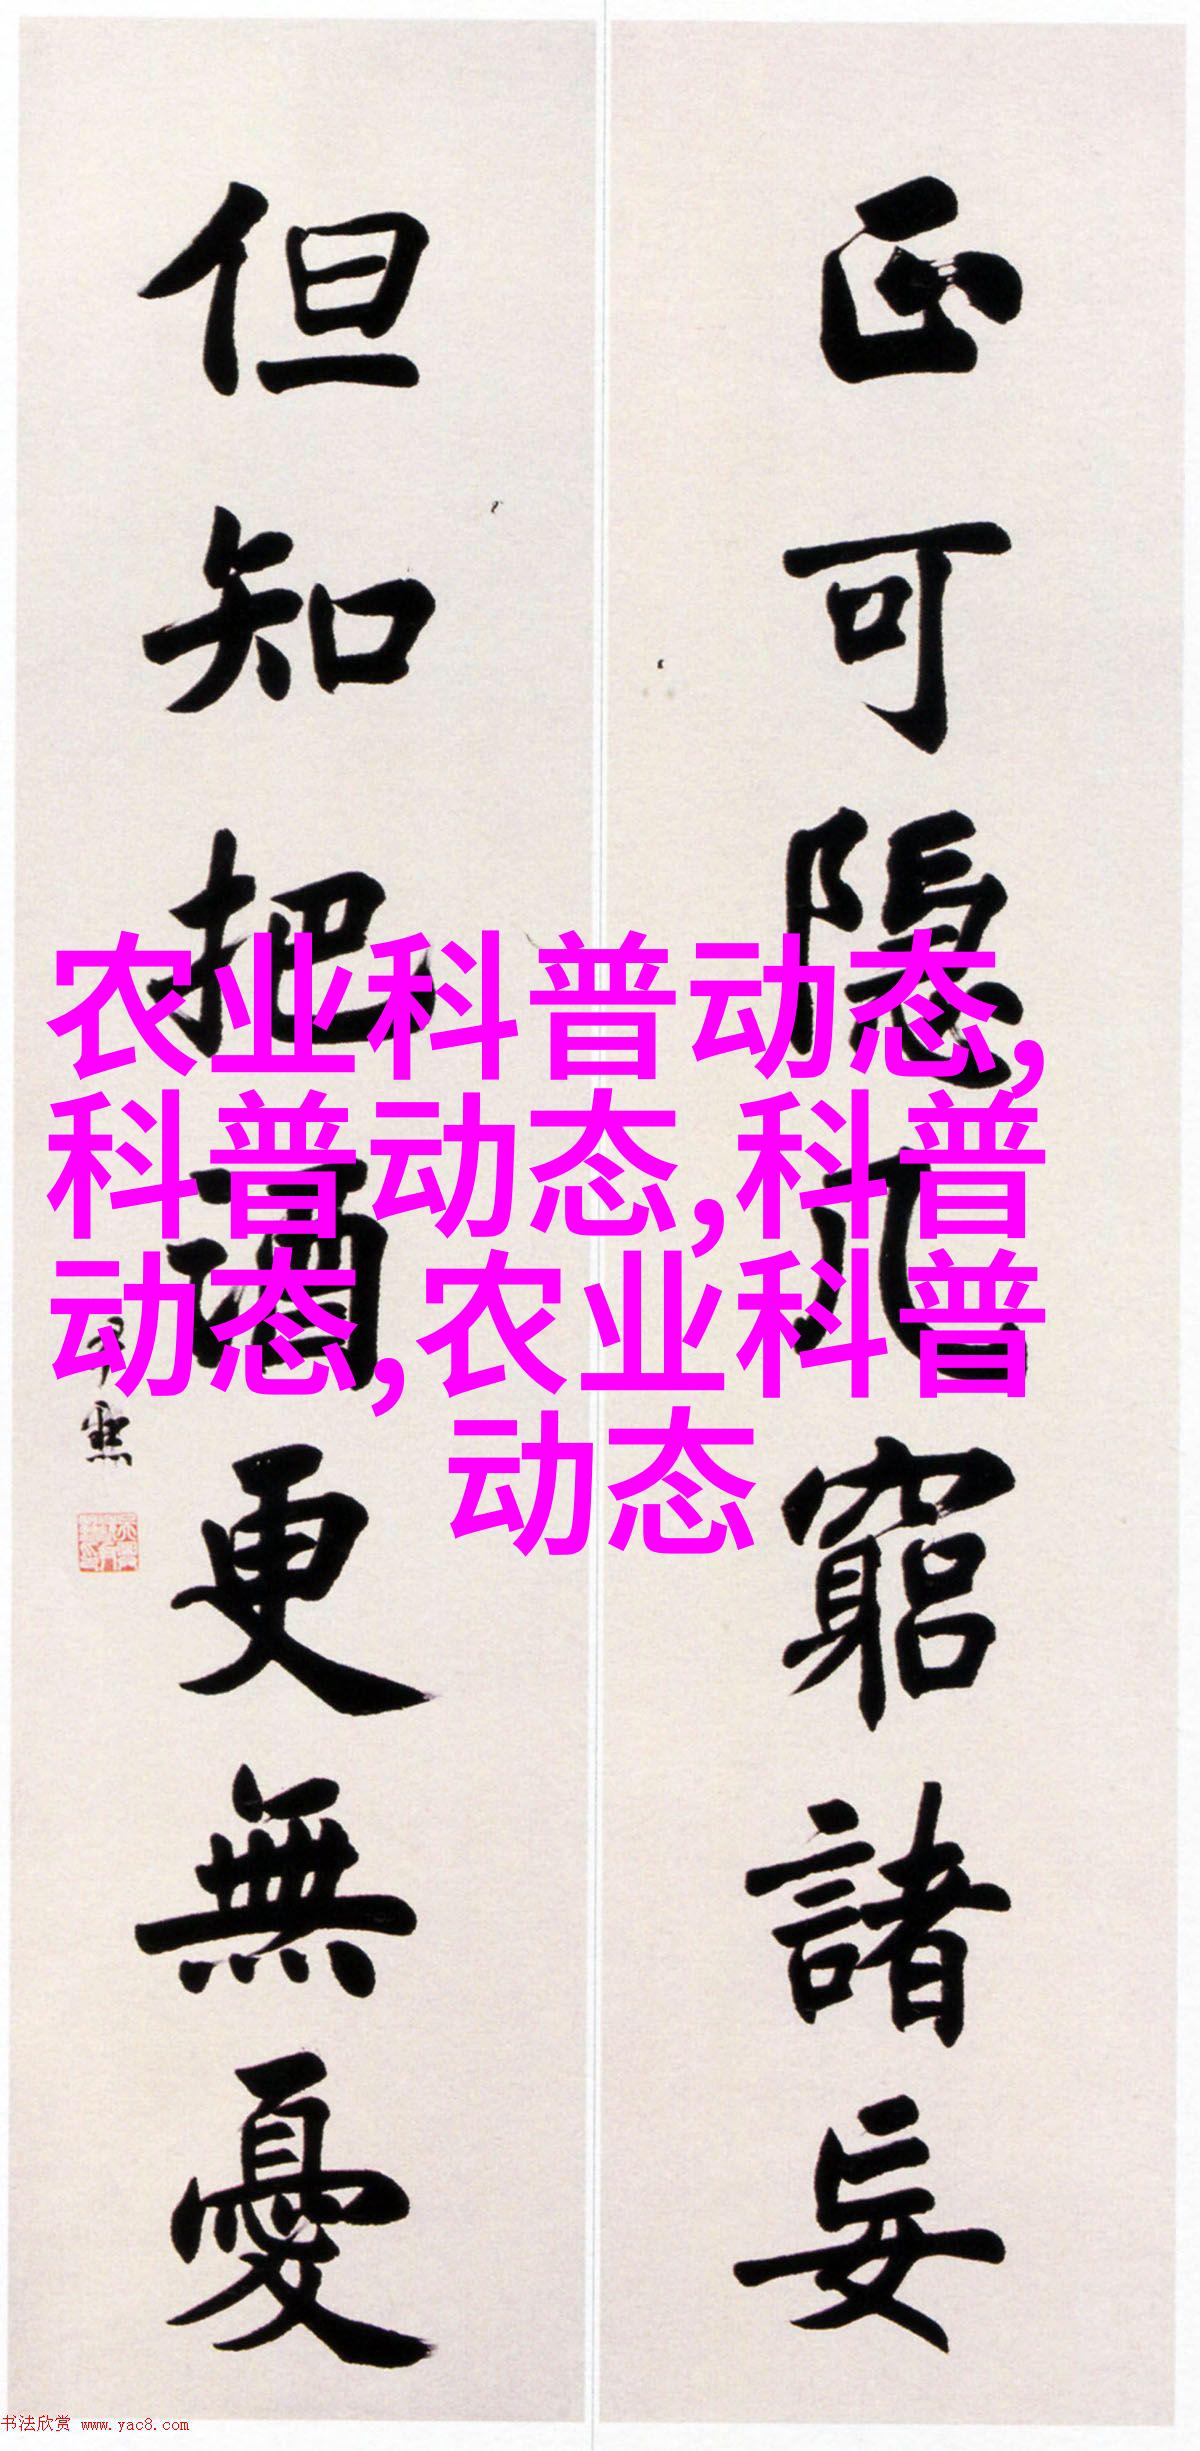 正可隱几窮諸妄
但知把酒更無憂
尹默
农业科普动态,
科普动态,科普
动态,农业科普
动态
书法欣赏 www.yac8.com